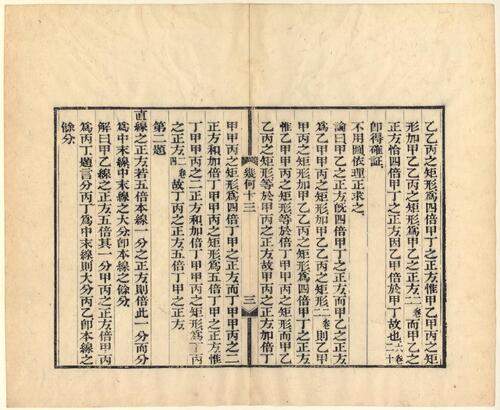 乙乙丙之矩形爲四倍甲丁之正方惟甲乙乙丙之矩
形加甲乙甲丙之矩形等於甲乙之正方二卷二而甲乙之
正方恰四倍甲丁之正方因甲乙倍於甲丁故也六卷二十
卽得確証
不用圖依理正求之
論曰甲乙之正方旣四倍甲丁之正方而甲乙之正方
爲乙甲甲丙之矩形加甲乙乙丙之矩形二卷二則乙甲
甲丙之矩形加甲乙乙丙之矩形爲四倍甲丁之正方
惟乙甲甲丙之矩形等於倍丁甲甲丙之矩形而甲乙
乙丙之矩形等於甲丙之正方故甲丙之正方加倍丁
幾何十三
三
甲甲丙之矩形爲四倍丁甲之正方而丁甲甲丙之二
正方和加倍丁甲甲丙之矩形爲五倍丁甲之正方惟
丁甲甲丙之二正方和加倍丁甲甲丙之矩形爲丁丙
之正方二卷四故丁丙之正方五倍丁甲之正方
第二題
直線之正方若五倍本線一分之正方則倍此一分而分
爲中末線中末線之大分卽本線之餘分
解曰甲乙線之正方五倍其一分甲丙之正方倍甲丙
爲丙丁題言分丙丁爲中末線則大分丙乙卽本線之
餘分